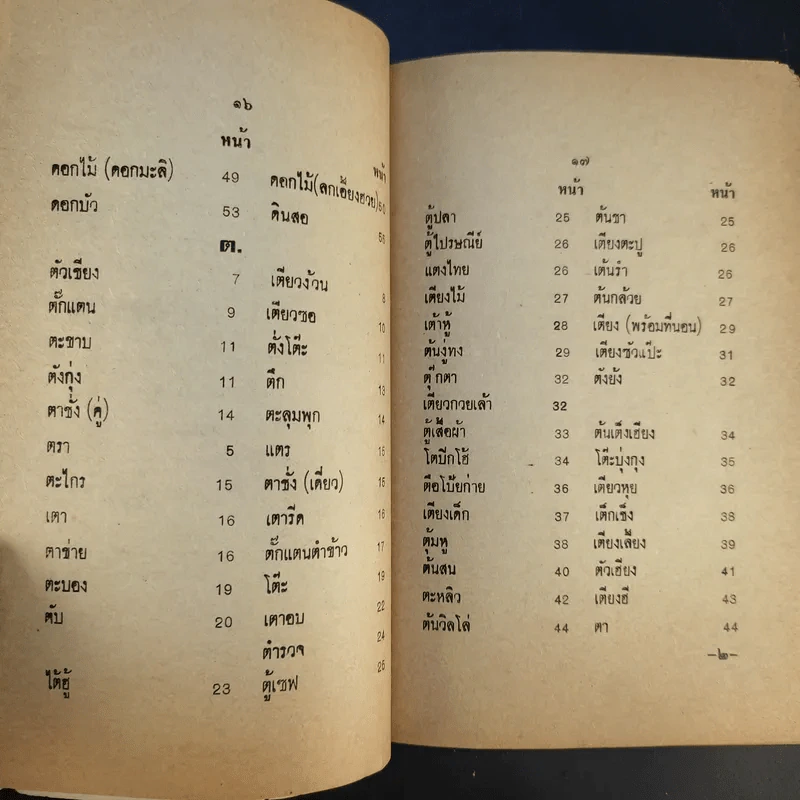 ๑๖
หน้า หน้า
ดอกไม้ (ดอกมะลิ) 49 ดอกไม้(ลกเอี๊ยงฮวย) 50
ดอกบัว 53 ดินสอ
ต.
ตัวเซียง 7 เตียวง้วน 8
ตั๊กแตน 9 เตียวซอ 10
ตะขาบ 11 ตั่งโต๊ะ 11
ตังกุ่ง 11 ตึก 13
ตาชั่ง (คู่) 14 ตะลุมพุก 14
ตรา 5 แตร 15
ตะไกร 15 ตาชั่ง (เดี่ยว) 15
เตา 16 เตารีด 16
ตาข่าย 16 ตั๊กแตนตำข้าว 17
ตะบอง 19 โต๊ะ 19
ตับ 20 เตาอบ 22
ตำรวจ 24
ไต้ฮู้ 23 ตู้เซฟ 25
๑๗
หน้า หน้า
ตู้ปลา 25 ต้นชา 25
ตู้ไปรษณีย์ 26 เตียงตะปู 26
แตงไทย 26 เต้นรำ 26
เตียงไม้ 27 ต้นกล้วย 27
เต้าหู้ 28 เตียง (พร้อมที่นอน) 29
ต้นงู่ทง 29 เตียงซัวแป๊ะ 31
ตุ๊กตา 32 ตังยัง 32
เตียวกวยเล้า 32
ตู้เสื้อผ้า 33 ต้นเต็งเฮียง 34
โตบีกโฮ้ 34 โต๊ะบุ่งกุง 35
ตือโป๊ยก่าย 36 เตียวหุย 36
เตียงเด็ก 37 เต็กเช็ง 38
ตุ้มหู 38 เตียงเสียง 39
ต้นสน 40 ตั้วเฮียง 41
ตะหลิว 42 เตียงฮี 43
ต้นวิลโล่ 44 ตา 44
–๒–